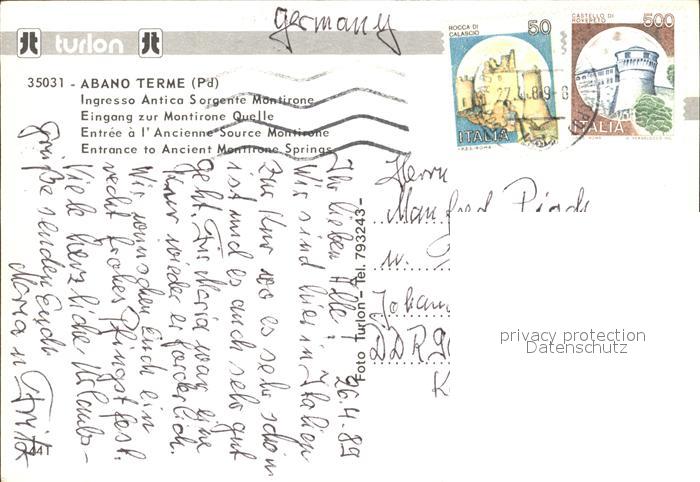 germany
turlon
35031 - ABANO TERME (Pd)
Ingresso Antica Sorgente Montirone
Eingang zur Montirone Quelle
Entrée à l'Ancienne Source Montirone
Entrance to Ancient Montirone Springs
ROCCA DI
CALASCIO
50
ITALIA
CASTELLO DI
ROVERETO
500
ITALIA
26.4.89
Ihr lieben Alle!
Wir sind hier in Italien
zur Kur wo es sehr schön
ist und es auch sehr gut
geht. Für Maria war eine
Kur wieder erforderlich.
Wir wünschen Euch ein
recht frohes Pfingstfest.
Viele herzliche Urlaubs-
grüße senden Euch
Maria u Fritz
Foto Turlon - Tel. 793243 -
Herrn
Manfred
u.
Johann
DDR 90
K
privacy protection
Datenschutz
441